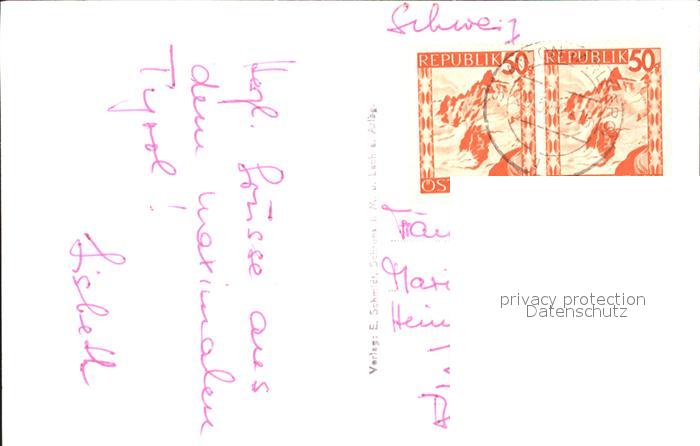 Schweiz
REPUBLIK 50g
REPUBLIK 50g
ÖS
Herzl. Grüsse aus
dem maximalen
Tyrol!
Lisbeth
Verlag: E. Schmidt, Schruns i. M. u. Lech a. Arlbg.
Fräu
Mari
Hein
privacy protection
Datenschutz